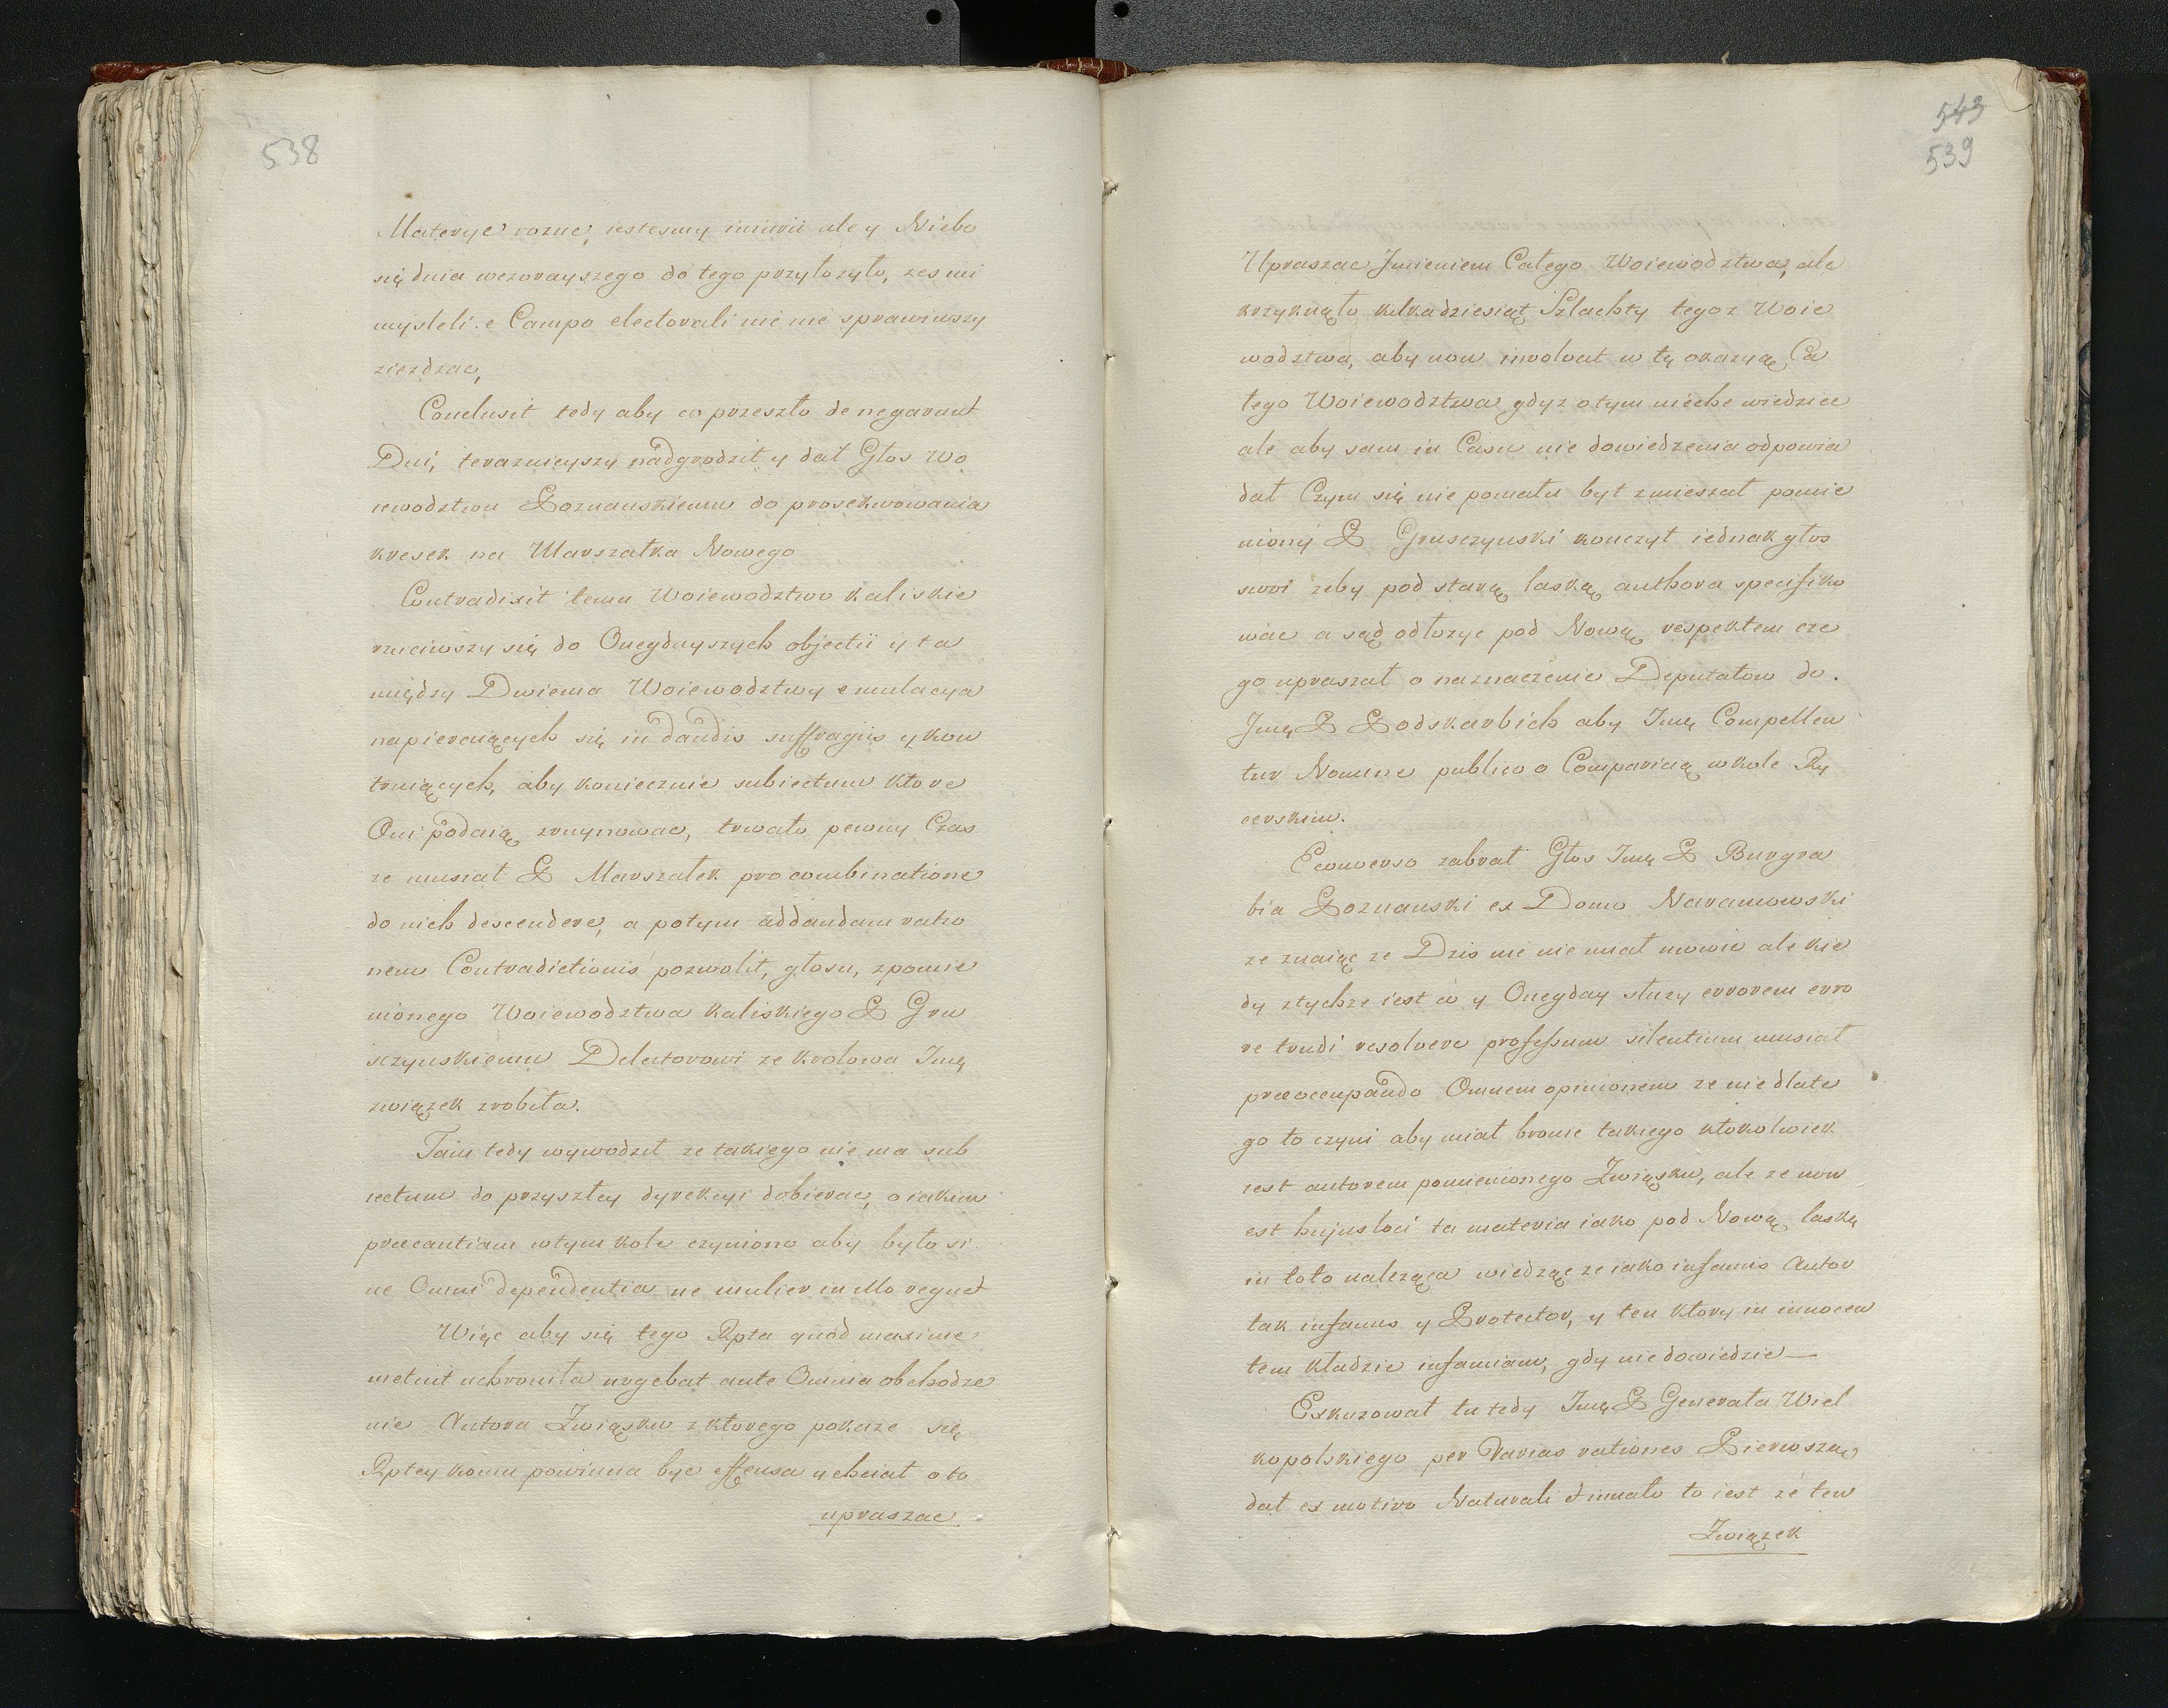 538
Materye rozne, iestesmy inimii ale y Niebo
się dnia wczorayszego do tego przyłozyło, zesmi
mysleli e Campo electorali nic nie sprawiwszy
ziezdzac,
Conclusit tedy aby co przeszło denegarunt
Dni, teraznieyszy nadgrodził y dał Głos Wo
iewodztwu Poznanskiemu do prosekwowania
kresek na Marszałka Nowego
Contradixit temu Woiewodztwo kaliskie
rzuciwszy się do Onegdayszych objectii y ta
między Dwiema Woiewodztwy emulacya
napieraiących się in dandis suffragiis y kon
truiących, aby koniecznie subiectum ktore
Oni podaią zruynowac, trwało pewny Czas
ze musiał P Marszałek pro combinatione
do nich descendere, a potym addandam ratio
nem Contradictionis pozwolił, głosu, zpomie
nionego Woiewodztwa kaliskiego P Gru
sczynskiemu Delatorowi ze krolowa Imę
związek zrobiła.
Tam tedy wywodził ze takiego nie ma sub
iectum do przyszłey dyrekcyi dobierac, o iakim
praecautiam wtym kole czyniono aby było si
ne Omni dependentia ne mulier in illo regnet
Więc aby się tego Rpta quod maxime
metuit uchroniła urgebat ante Omnia obchodze
nie Autora Związku z ktorego pokaze się
Rptey komu powinna byc offensa y chciał o to
upraszac
543
539
Upraszac Imieniem Całego Woiewodztwa, ale
krzyknęło kilkadziesiąt Szlachty tegoz Woie
wodztwa, aby non involvat w tę okazyą Ca
łego Woiewodztwa gdyz otym niechc wiedziec
ale aby sam in Casu nie dowiedzenia odpowia
dał Czym się nie pomału był zmieszał pomie
niony P Grusczynski konczył iednak głos
swoi zeby pod starą laską authora specifiko
wac a sąd odłozyc pod Nową respektem cze
go upraszał o naznaczenie Deputatow do.
Imę P Podskarbich aby Imę Compellen
tur Nomine publico o Comparicią w kole Ry
cerskim.
Econverso zabrał Głos Imę P Burgra
bia Poznanski ex Domo Naramowski
ze znaiąc ze Dzis nic nie miał mowic ale kie
dy ztychze iest co y Onegday słuzy errorem erro
re trudi resolvere professum silentium musiał
praeoccupando Omnem opinionem ze nie dlate
go to czyni aby miał bronic takiego ktokolwiek
iest autorem pomienionego Związku, ale ze non
est hujus loci ta materia iako pod Nową laskę
in toto naleząca wiedząc ze iako infamis Autor
tak infamis y Protector, y ten ktory in innocen
tem kładzie infamiam, gdy nie dowiedzie —
Exkuzował tu tedy Imę P Generała Wiel
kopolskiego per Varias rationes Pierwszą
dał ex motivo Naturali innato to iest ze ten
Związek